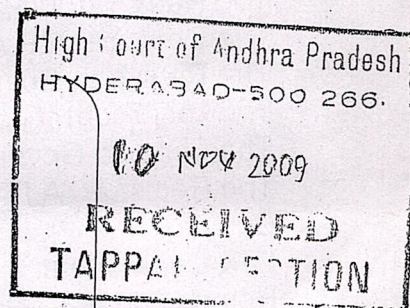 High Court of Andhra Pradesh
HYDERABAD-500 266.
10 NOV 2009
RECEIVED
TAPPAL SECTION